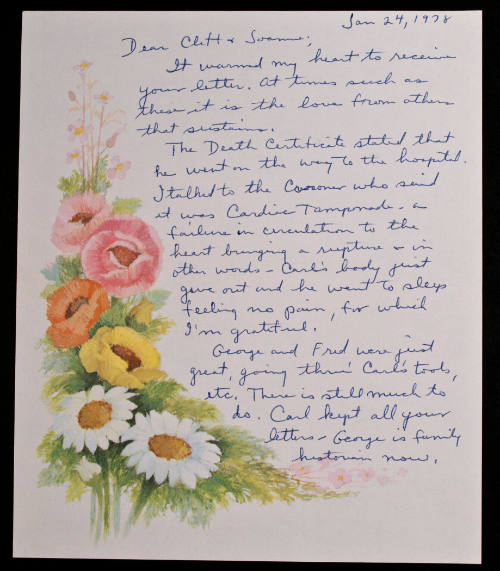 Jan 24, 1978
Dear Cliff & Joanne;
It warmed my heart to receive
your letter. At times such as
these it is the love from others
that sustains.
The Death Certificate stated that
he went on the way to the hospital.
I talked to the Coroner who said
it was Cardiac Tamponade - a
failure in circulation to the
heart bringing a rupture - in
other words - Carl's body just
gave out and he went to sleep
feeling no pain, for which
I'm grateful.
George and Fred were just
great, going thru' Carl's tools,
etc. There is still much to
do. Carl kept all your
letters - George is family
historian now.